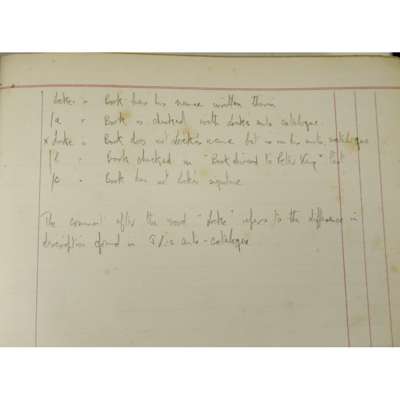 Locke = Book has his name written therin
/a = Book is checked with Locke's auto catalogue.
x Locke = Book does not Locke's name but is in his auto catalogue
/l = Book checked in "Books divined to Peter King" list
/c = Book has not Locke's signature

The comment after the word "Locke" refers to the difference in
description found in his auto-catalogue